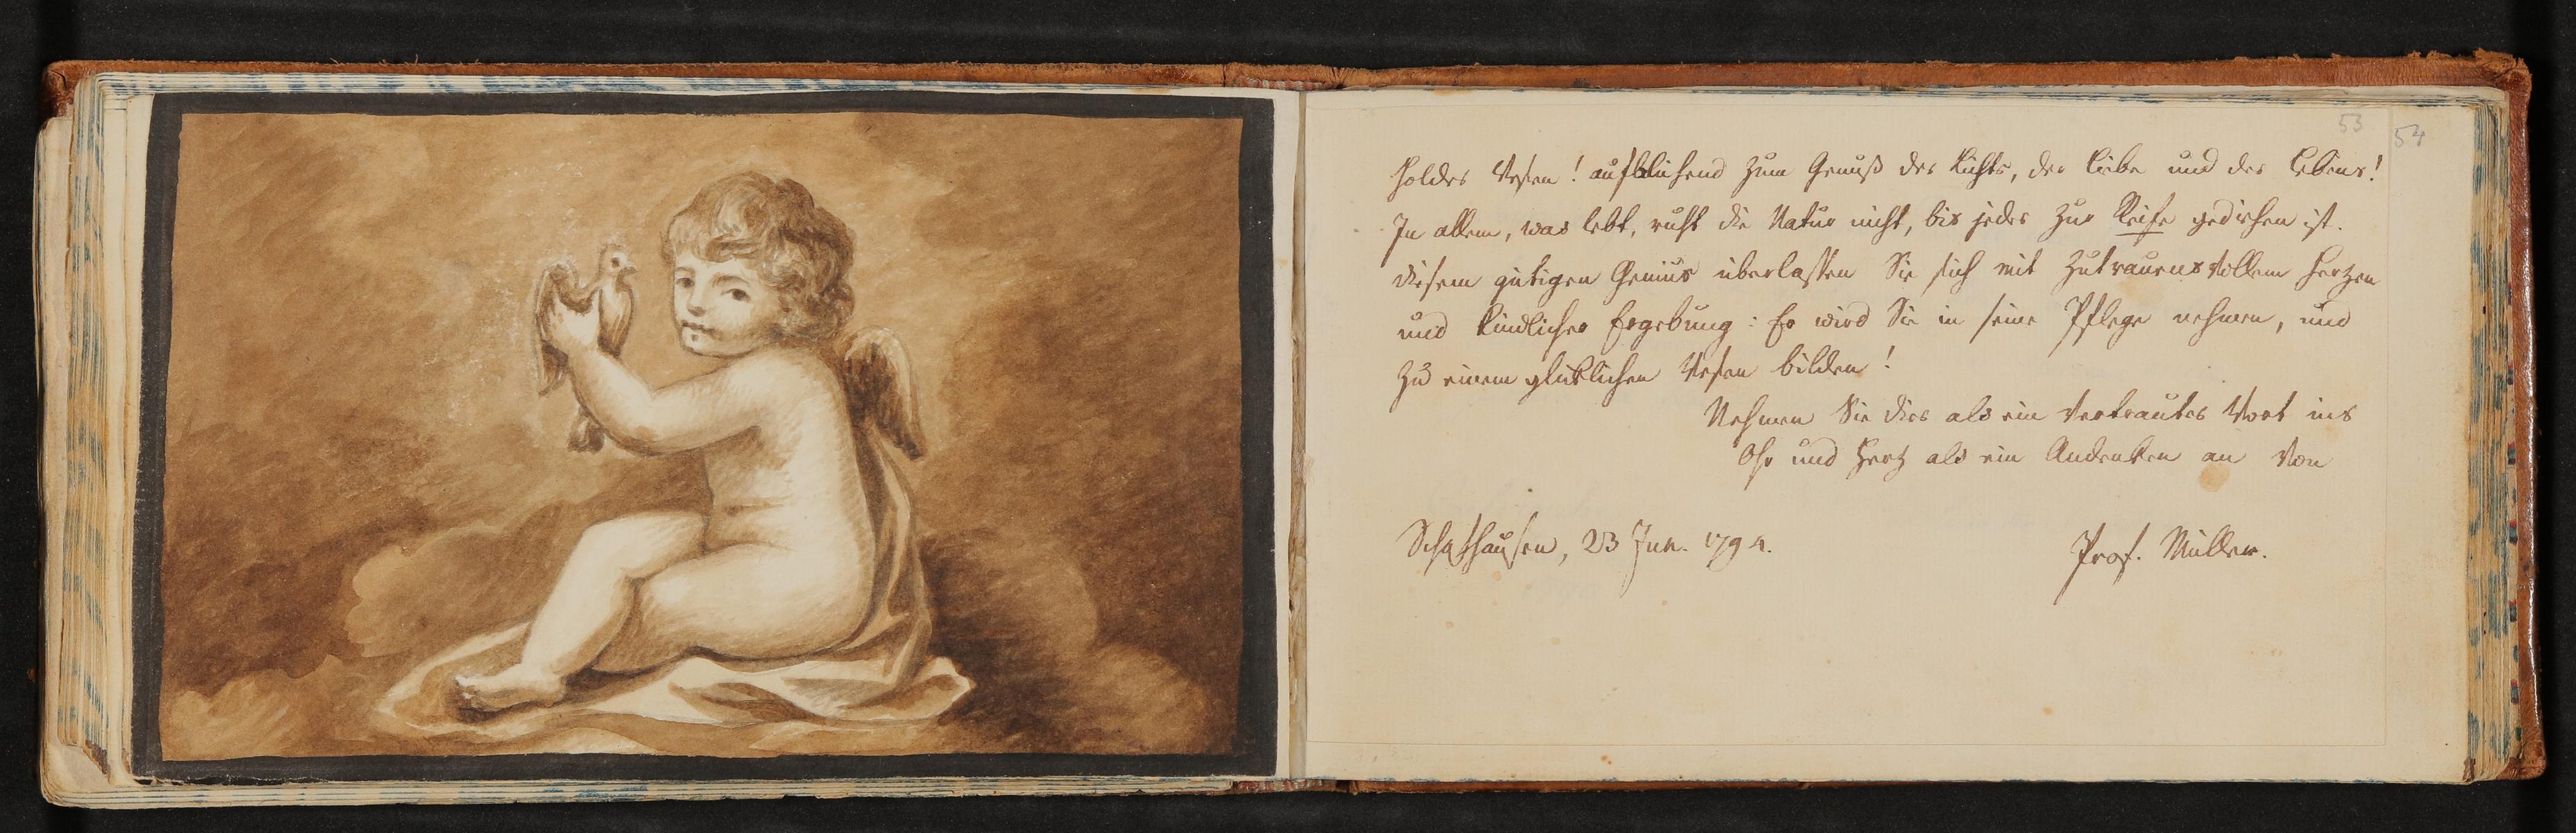 53
54
Holdes Wesen! aufblühend zum Genuß des Lichts, der Liebe und des Lebens!
In allem, was lebt, ruht die Natur nicht, bis jedes zur Reife gediehen ist.
Diesem gütigen Genius überlaßen Sie sich mit Zutrauensvollem Herzen
und kindlicher Ergebung: Er wird Sie in seine Pflege nehmen, und
zu einem glüklichen Wesen bilden!
Nehmen Sie dies als ein vertrautes Wort ins
Ohr und Herz als ein Andenken an von
Schafhausen, 23 Jun. 1794.
Prof. Müller.